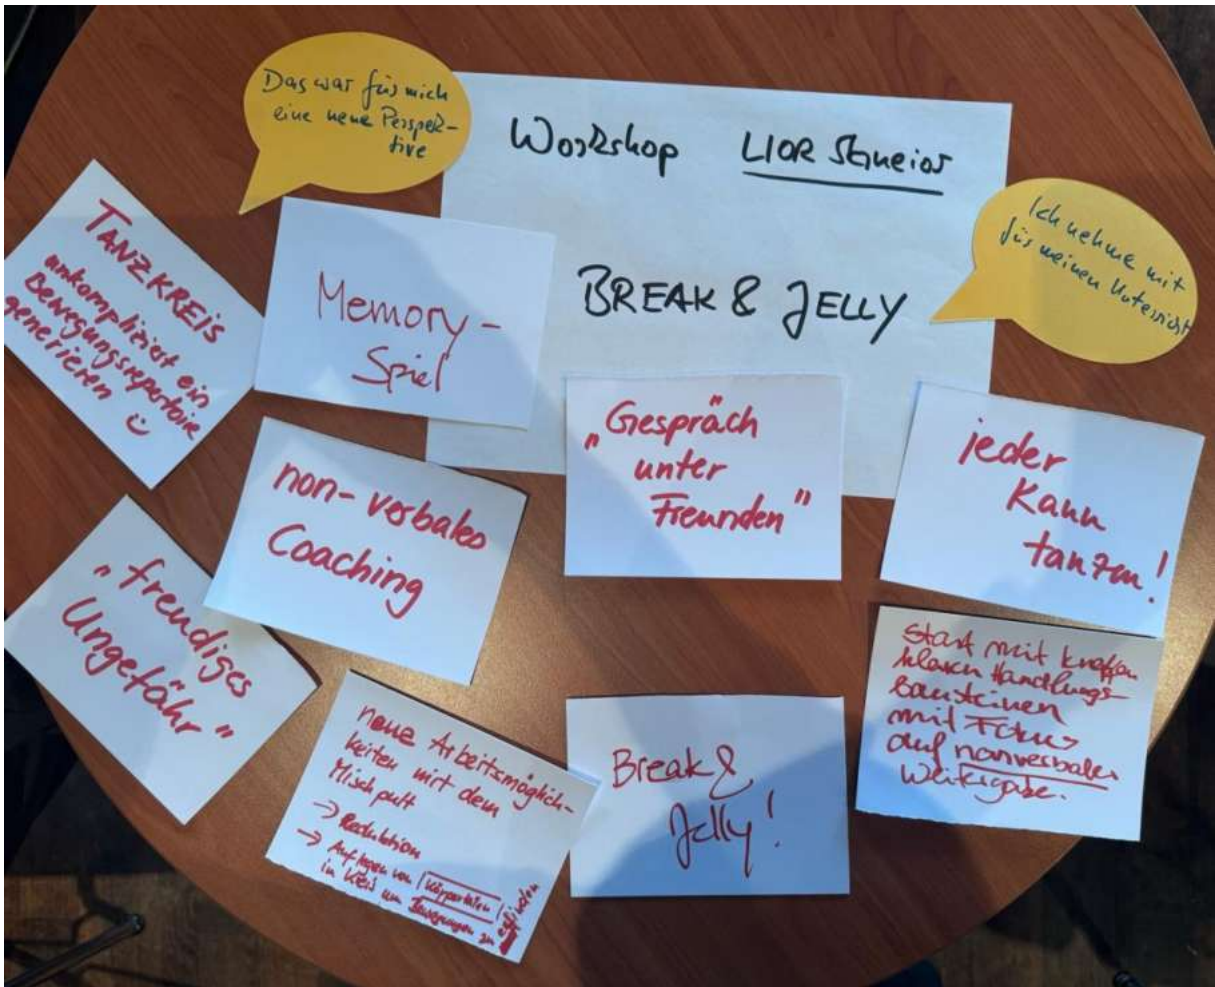 Das war für mich
eine neue Perspek-
tive
Workshop LIOR
BREAK & JELLY
Ich nehme mit
für meinen Unterricht
TANZKREIS
unkompliziert ein
Bewegungsrepertoire
generieren
Memory-
Spiel
„Gespräch
unter
Freunden"
jeder
kann
tanzen!
non-verbales
Coaching
„freudiges
Ungefähr"
neue Arbeitsmöglich-
keiten mit dem
Mischpult
→ Reduktion
→ Auflegen von Körperteilen
in Kreis um Bewegungen zu
Break &
Jelly!
Start mit
klaren Handlungs-
bausteinen
mit Fokus
auf nonverbaler
Weitergabe.